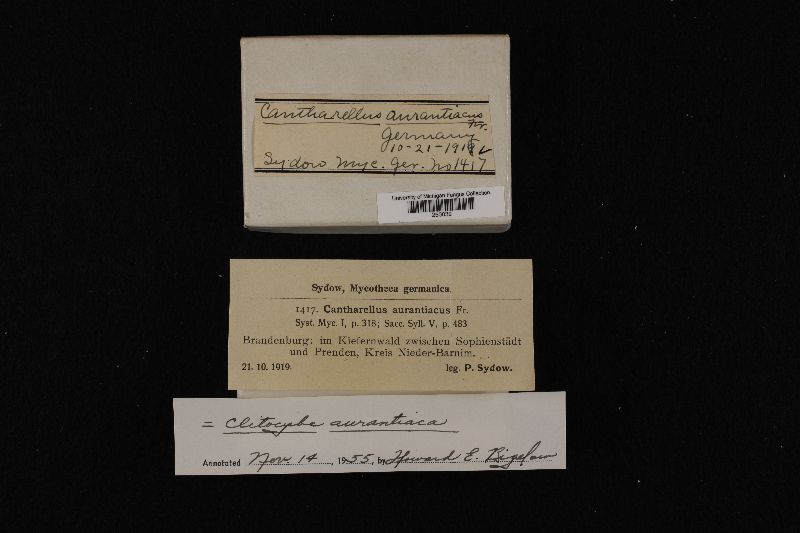 Cantharellus aurantiacus
Fr.
Germany
10-21-1919
Sydow Myc. Ger. No 1417
University of Michigan Fungus Collection
Sydow, Mycotheca germanica.
1417. Cantharellus aurantiacus Fr.
Syst. Myc. I, p. 318; Sacc. Syll. V, p. 483
Brandenburg: im Kiefernwald zwischen Sophienstädt
und Prenden, Kreis Nieder-Barnim.
21. 10. 1919. leg. P. Sydow.
= Clitocybe aurantiaca
Annotated Nov. 14, 1955, by Howard E. Bigelow